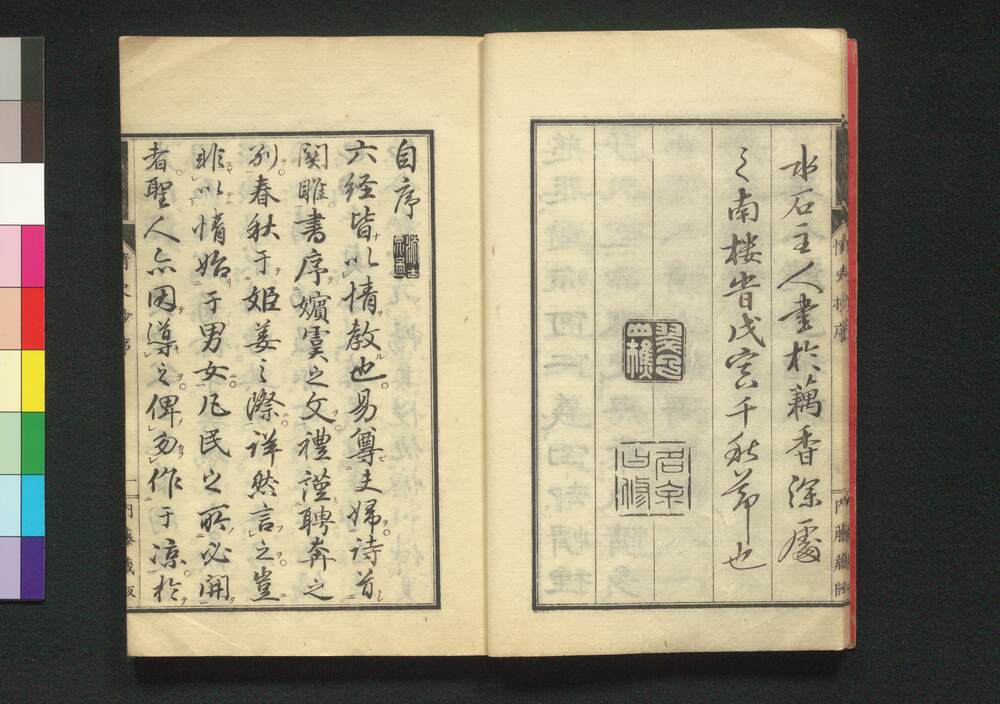 水石主人書於藕香深處
之南楼昔戊寅千秋節也
自序
六経皆以情教也易尊夫婦詩首
関雎書序嬪虞之文禮謹聘奔之
別春秋于姫姜之際詳然言之豈
非以情始于男女凡民之所必開
者聖人亦因導之俾勿作于凉於